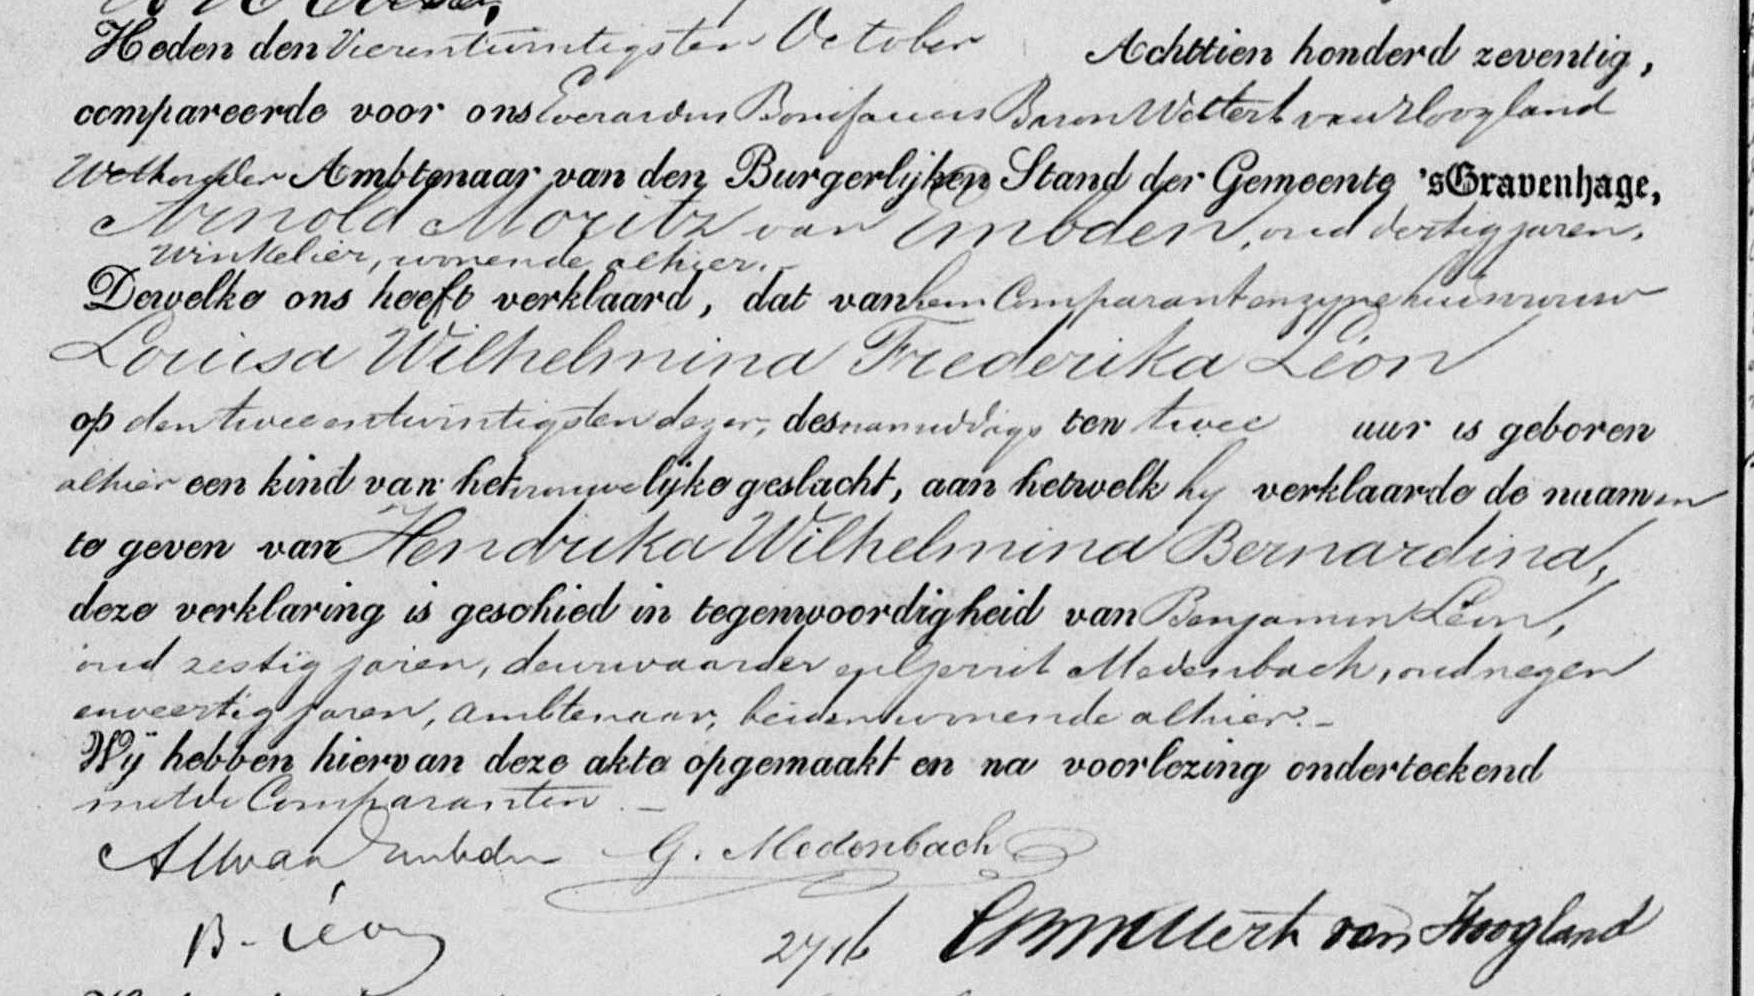 Heden den Vierentwintigsten October Achttien honderd zeventig,
compareerde voor ons Everardus Bonifacius Baron Wittert van Hoogland
Wethouder Ambtenaar van den Burgerlijken Stand der Gemeente 'sGravenhage,
Arnold Moritz van Embden, oud dertig jaren,
Winkelier, wonende alhier.-
Dewelke ons heeft verklaard, dat van hem Comparant en zyne huisvrouw
Louisa Wilhelmina Frederika Léon
op den tweeentwintigsten dezer, des namiddags ten twee uur is geboren
alhier een kind van het vrouwelijke geslacht, aan hetwelk hy verklaarde de naamen
te geven van Hendrika Wilhelmina Bernardina,
deze verklaring is geschied in tegenwoordigheid van Benjamin Léon,
oud zestig jaren, deurwaarder en Gerrit Medenbach, oud negen
enveertig jaren, ambtenaar, beiden wonende alhier.-
Wij hebben hiervan deze akte opgemaakt en na voorlezing onderteekend
met de Comparanten.-
AMvan Embden G. Medenbach
B. Léon 2716 EBWittert van Hoogland